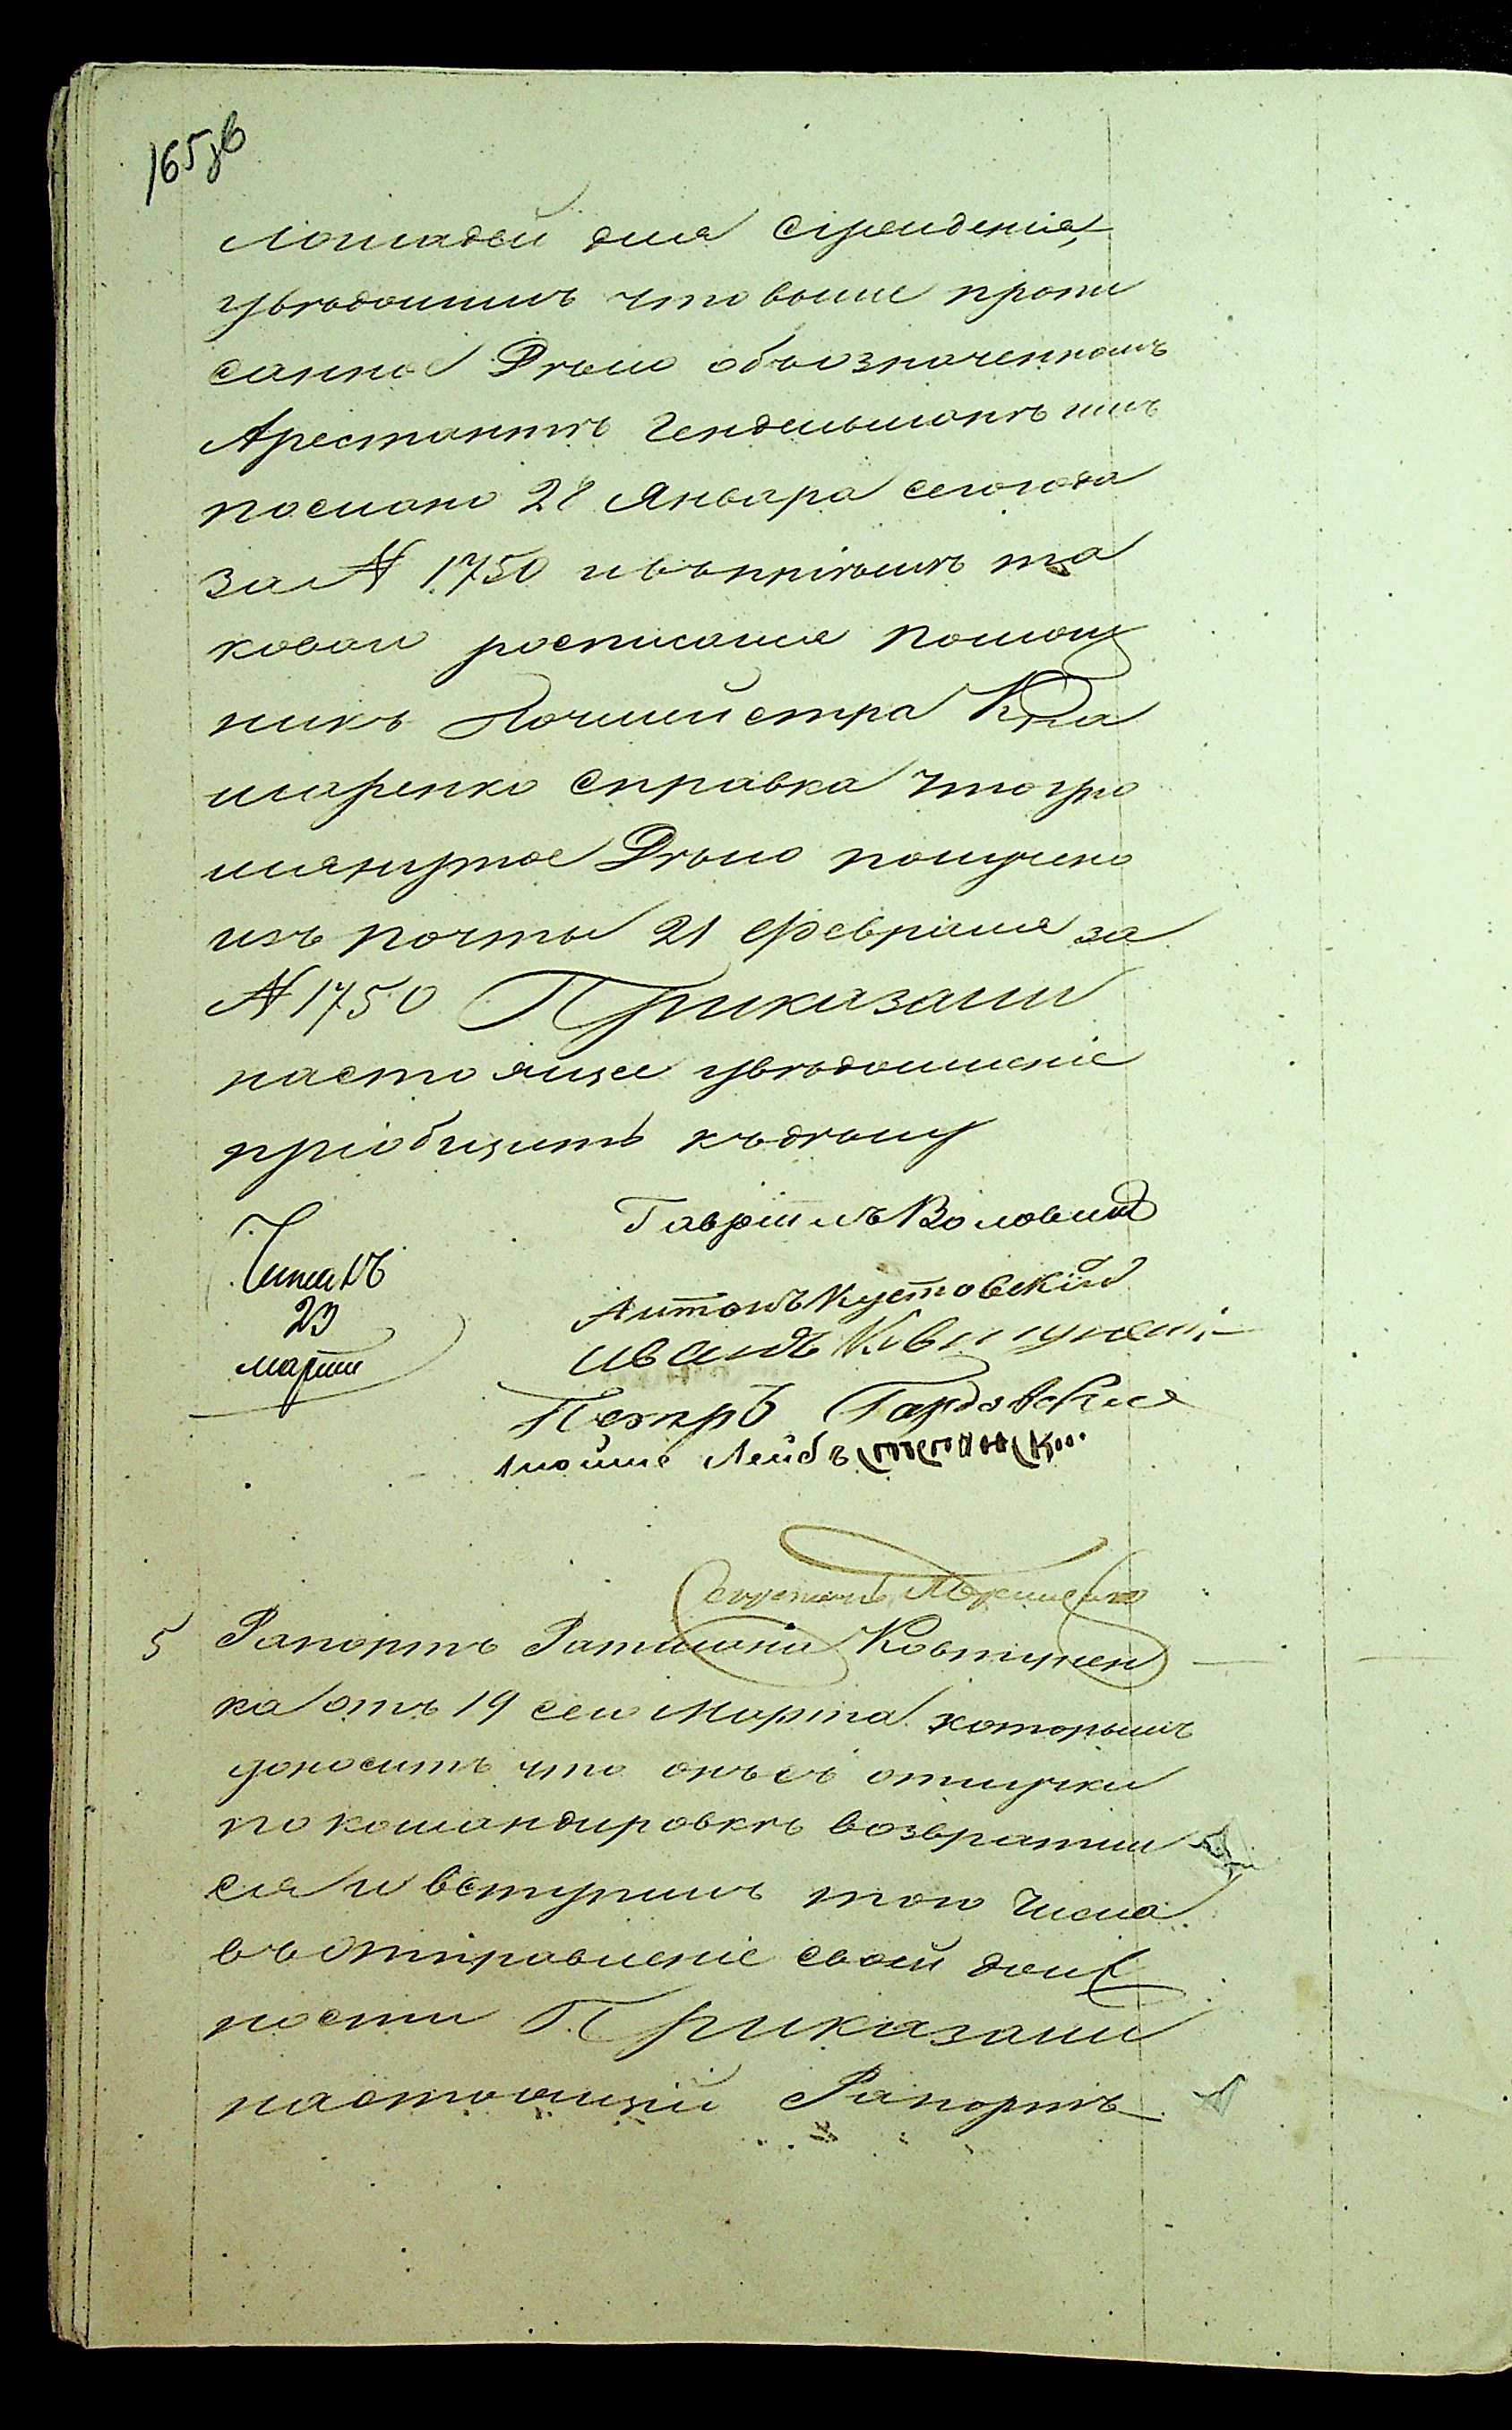 165 зв
лошадей для
увѣдомилъ что выше пропи
санное Дѣло объ означенномъ
Арестантѣ Гендельманѣ имъ
послано 28 Января сего года
за № 1750 и въ пріѣмѣ та
коваго росписался помощ
никъ Почмейстра
шаренко справка что упо
мянутое Дѣло получено
изъ почты 21 Февраля за
№ 1750 Приказали
настоящее увѣдомленіе
пріобщить къ дѣлу
Гавріилъ Воловик
Читалъ
23
марта
Антонъ Кустовскій
Иванъ
Петръ
Мошко Лейбъ
Секретарь
5 Рапортъ Ратмана Ковтунен
ка отъ 19 сего Марта которымъ
доноситъ что онъ съ отлучки
по командировкѣ возвратил
ся и вступилъ того числа
въ отправленіе своей долж
ности Приказали
настоящій Рапортъ